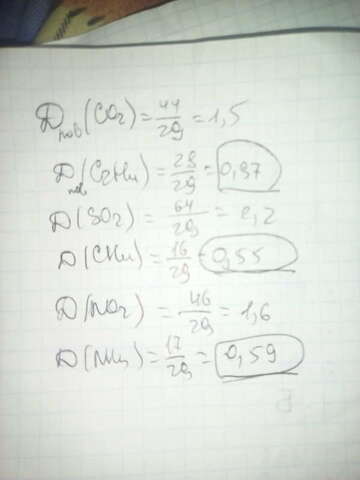 Dпов(CO2)=44/29=1,5
Dпов(C2H4)=28/29=0,97
D(SO2)=64/29=2,2
D(CH4)=16/29=0,55
D(NO2)=46/29=1,6
D(NH3)=17/29=0,59